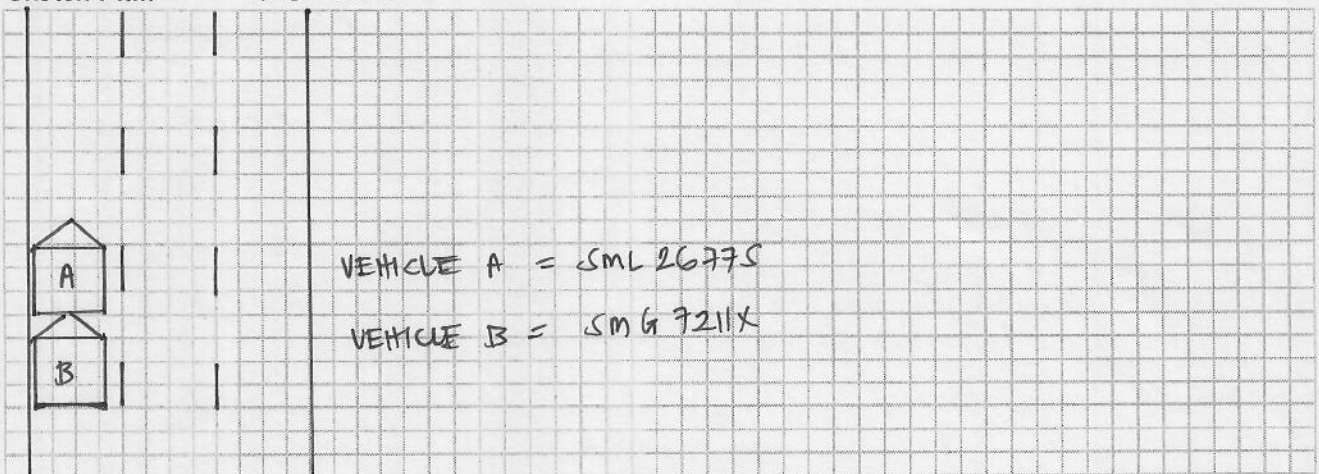 A
B
VEHICLE A = SML 2677S
VEHICLE B = SMG 7211X